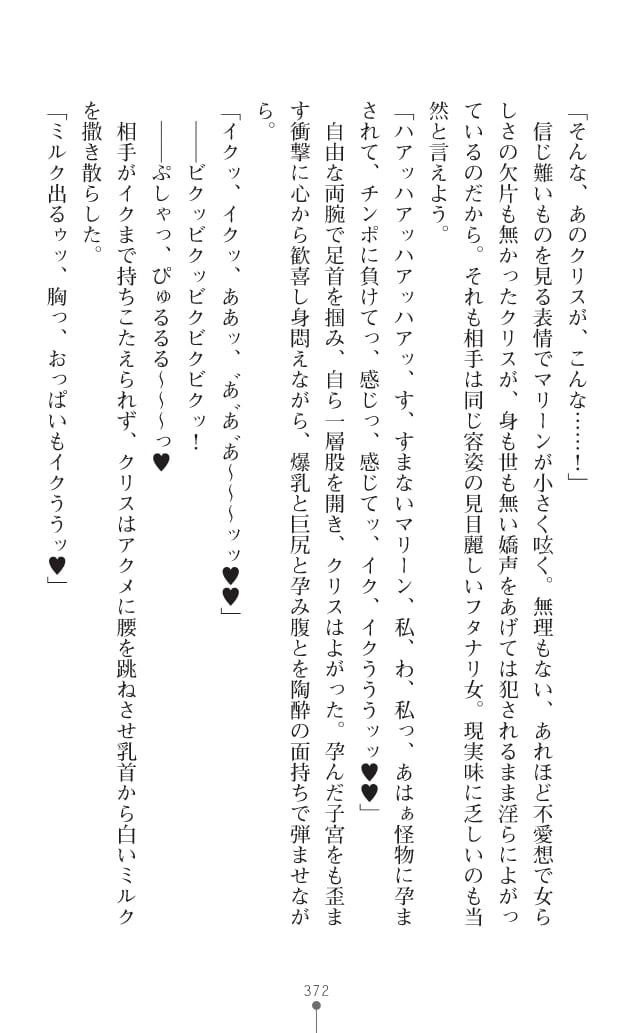 「そんな、あのクリスが、こんな……！」
　信じ難いものを見る表情でマリーンが小さく呟く。無理もない、あれほど不愛想で女ら
しさの欠片も無かったクリスが、身も世も無い嬌声をあげては犯されるまま淫らによがっ
ているのだから。それも相手は同じ容姿の見目麗しいフタナリ女。現実味に乏しいのも当
然と言えよう。
「ハアッハアッハアッハアッ、す、すまないマリーン、私、わ、私っ、あはぁ怪物に孕ま
されて、チンポに負けてっ、感じっ、感じてッ、イク、イクうううッッ♥♥」
　自由な両腕で足首を掴み、自ら一層股を開き、クリスはよがった。孕んだ子宮をも歪ま
す衝撃に心から歓喜し身悶えながら、爆乳と巨尻と孕み腹とを陶酔の面持ちで弾ませなが
ら。
「イクッ、イクッ、ああッ、あ゛あ゛あ゛～～～ッッ♥♥」
　――ビクッビクッビクビクビクッ！
　――ぷしゃっ、ぴゅるるる～～～っ♥
　相手がイクまで持ちこたえられず、クリスはアクメに腰を跳ねさせ乳首から白いミルク
を撒き散らした。
「ミルク出るゥッ、胸っ、おっぱいもイクううッ♥」
372